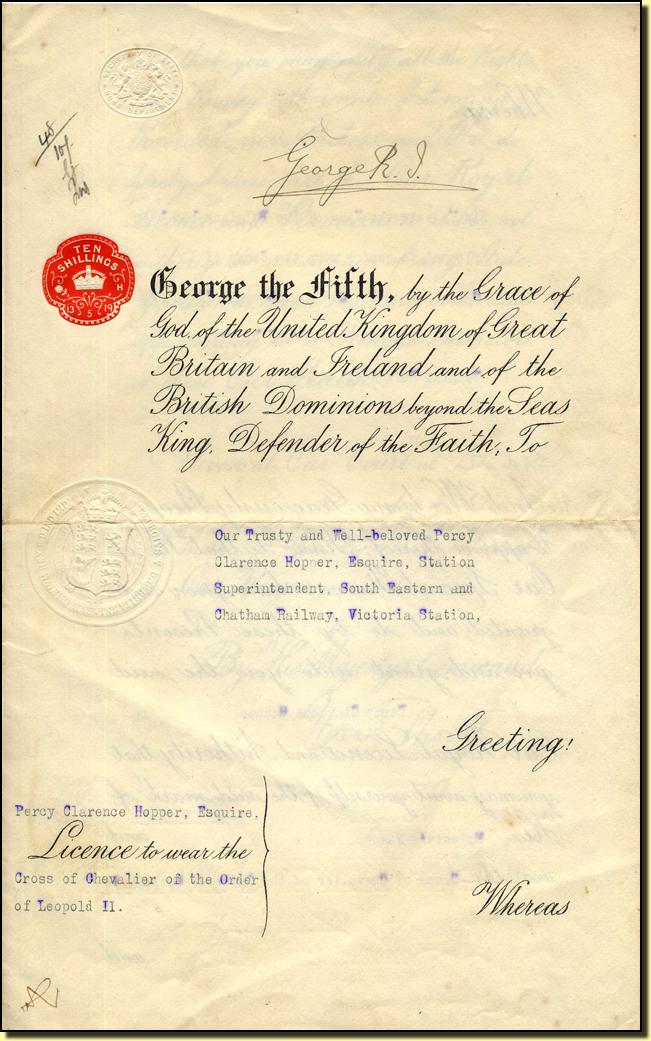 SECRETARY OF STATE
HOME DEPARTMENT
48/
George R. I.
TEN
SHILLINGS
H
13 5 19
George the Fifth, by the Grace of
God, of the United Kingdom of Great
Britain and Ireland and of the
British Dominions beyond the Seas
King, Defender of the Faith, To
Our Trusty and Well-beloved Percy
Clarence Hopper, Esquire, Station
Superintendent, South Eastern and
Chatham Railway, Victoria Station,
Greeting!
Percy Clarence Hopper, Esquire,
Licence to wear the
Cross of Chevalier of the Order
of Leopold II.
Whereas